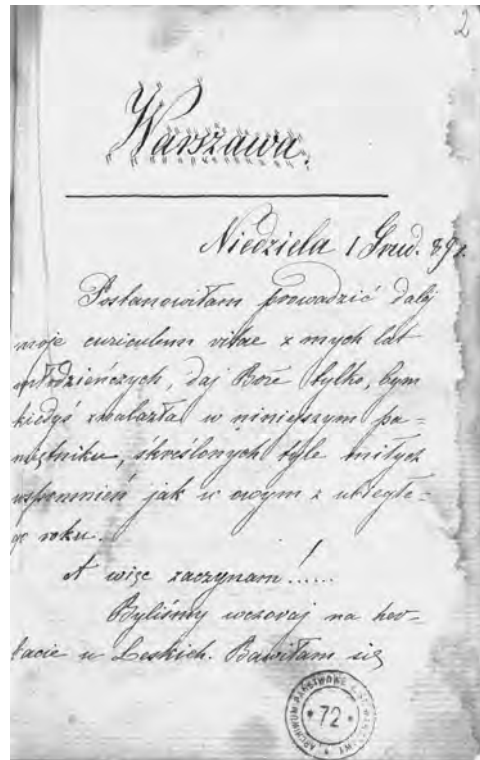 2
Warszawa.
Niedziela 1 Grud. 89 r.
Postanowiłam prowadzić dalej
moje curiculum vitae z mych lat
młodzieńczych, daj Boże tylko, bym
kiedyś znalazła w niniejszym pa=
miętniku, skreślonych tyle miłych
wspomnień jak w owym z ubiegłe=
go roku.
A więc zaczynam!.....
Byliśmy wczoraj na her=
bacie u Leskich. Bawiłam się
ARCHIWUM PAŃSTWOWE
72